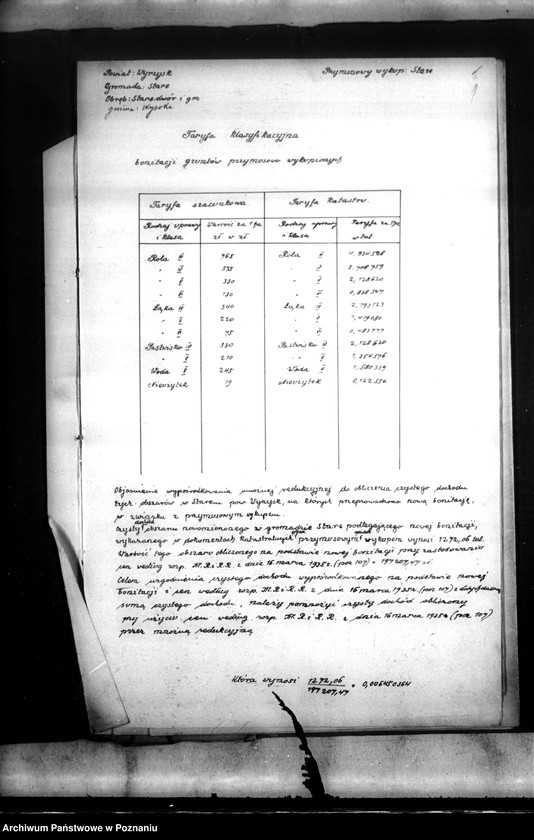 Powiat: Wyrzysk
Przymusowy wykup: Stare
1
Gromada: Stare
Obręb: Stare dwór i gm
gmina: Wysoka
Taryfa klasyfikacyjna
bonitacji gruntów przymusowo wykupionych
Taryfa szacunkowa Taryfa katastr.
Rodzaj uprawy Wartość za 1 ha Rodzaj uprawy Taryfa za 1 ha
i klasa zł w zł i klasa w tal.
Rola III 765 Rola III 4,934528
" IV 575 " IV 3,708959
" V 330 " V 2,128620
" VI 130 " VI 0,838547
Łąka IV 340 Łąka IV 2,193123
" V 220 " V 1,419080
" VI 75 " VI 0,483777
Pastwisko IV 330 Pastwisko IV 2,128620
" V 210 " V 1,354576
Woda II 245 Woda II 1,580339
Nieużytek 19 Nieużytek 0,122556
Objaśnienie wypośrodkowania mnożnej redukcyjnej do obliczenia czystego dochodu
tych obszarów w Starem pow. Wyrzysk, na których przeprowadzono nową bonitację,
w związku z przymusowym wykupem.
Czysty dochód obszaru nowomierzonego w gromadzie Stare podlegającego nowej bonitacji,
wykazanego w dokumentach katastralnych przymusowym wykupem wynosi 1272,06 tal.
Wartość tego obszaru obliczonego na podstawie nowej bonitacji przy zastosowaniu
cen według rozp. M.R. i R.R. z dnia 16 marca 1935 r. (poz 107) = 197207,47 zł
Celem uzgodnienia czystego dochodu wypośrodkowanego na podstawie nowej
bonitacji i cen według rozp. M.R. i R.R. z dnia 16 marca 1935 r. (poz 107) z dotychczasową
sumą czystego dochodu, należy pomnożyć czysty dochód obliczony
przy użyciu cen według rozp. M.R. i R.R. z dnia 16 marca 1935 r. (poz 107)
przez mnożną redukcyjną
która wynosi 1272,06 / 197207,47 = 0,006450364
Archiwum Państwowe w Poznaniu